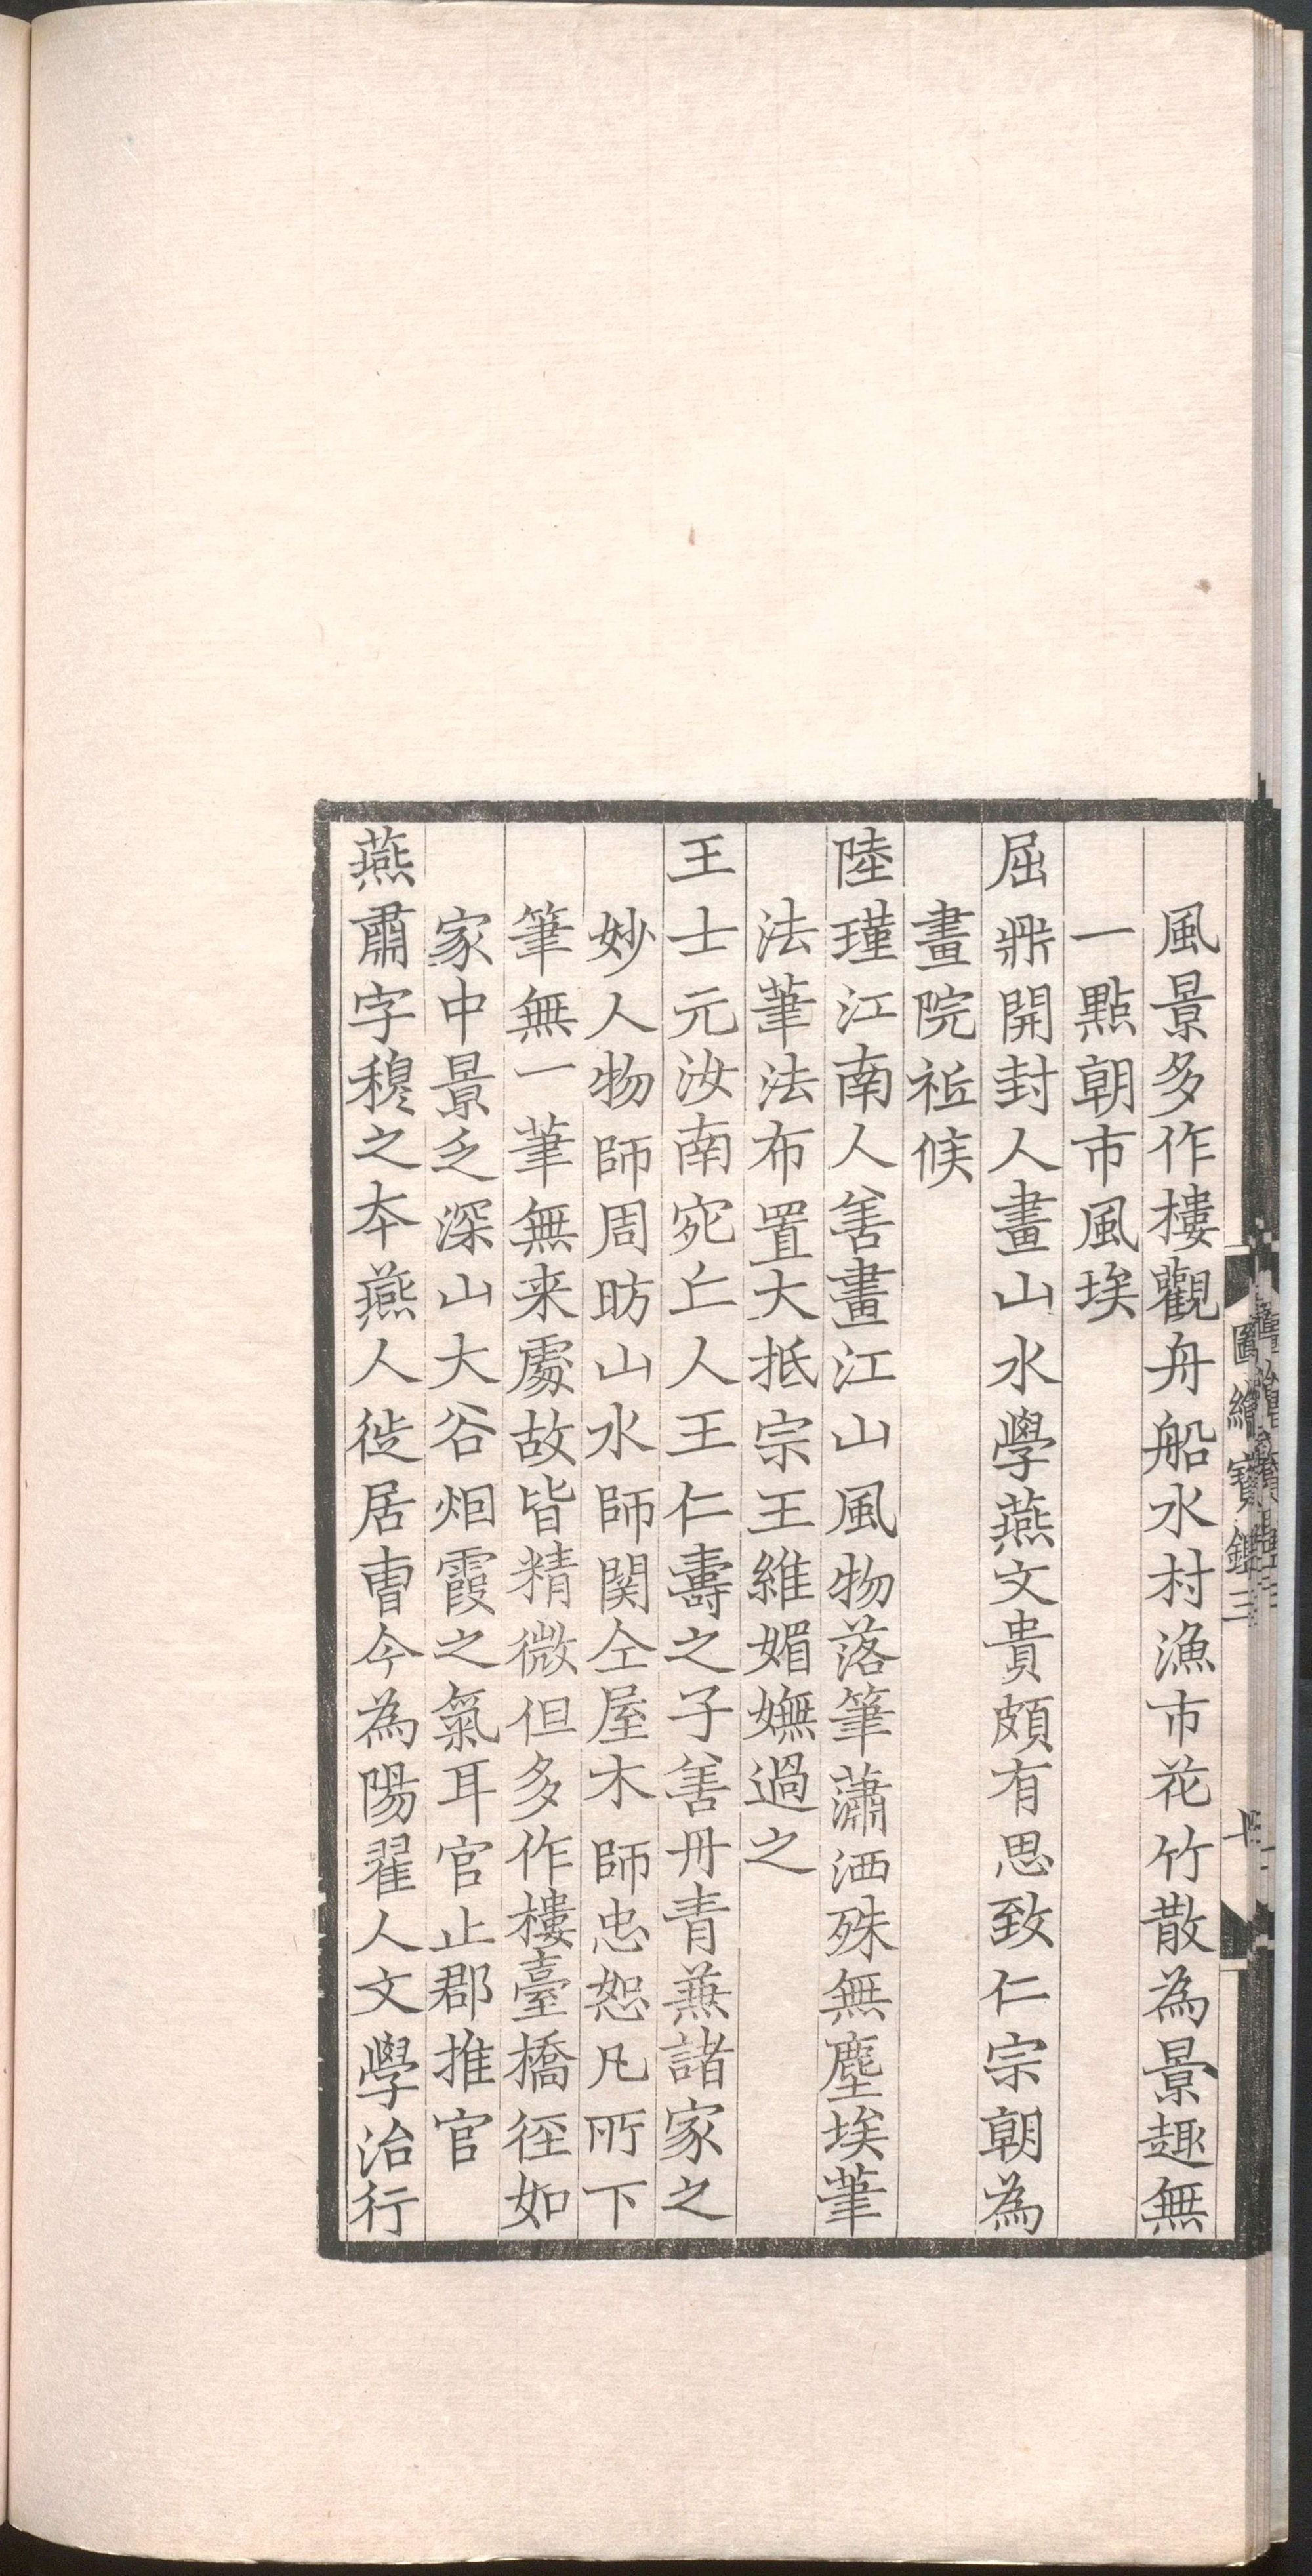 風景多作樓觀舟船水村漁市花竹散為景趣無
一點朝市風埃
屈鼎開封人畫山水學燕文貴頗有思致仁宗朝為
畫院祗候
陸瑾江南人善畫江山風物落筆瀟洒殊無塵埃筆
法筆法布置大抵宗王維媚嫵過之
王士元汝南宛丘人王仁壽之子善丹青兼諸家之
妙人物師周昉山水師関仝屋木師忠恕凡所下
筆無一筆無来處故皆精微但多作樓臺橋徑如
家中景乏深山大谷烟霞之氣耳官止郡推官
燕肅字穆之本燕人徙居曹今為陽翟人文學治行
圖繪寶鑑三